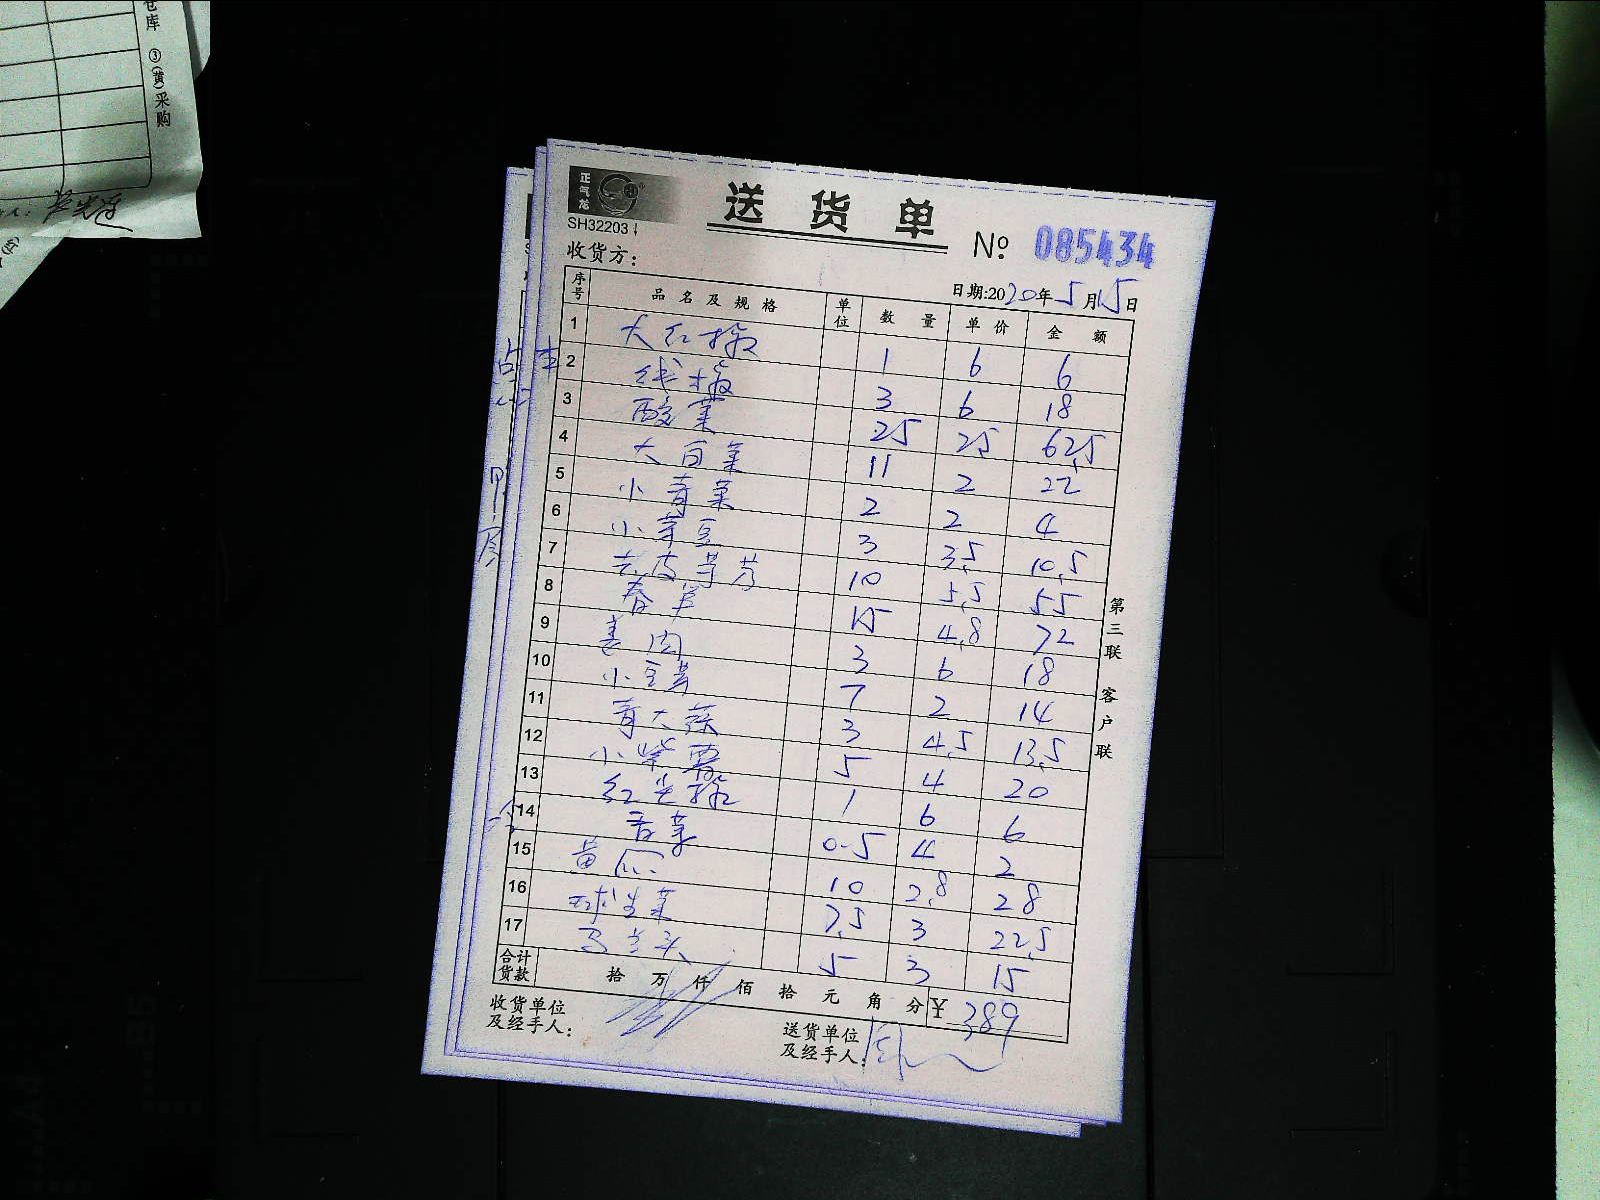 仓库 ③(黄)采购
正气龙
SH32203
送货单
№ 085434
收货方:
日期:2020年5月15日
序号 品名及规格 单位 数量 单价 金额
1 大红椒 1 6 6
2 线椒 3 6 18
3 酸菜 25 2.5 62.5
4 大白菜 11 2 22
5 小青菜 2 2 4
6 小芽豆 3 3.5 10.5
7 去皮芋艿 10 5.5 55
8 春笋 15 4.8 72
9 姜肉 3 6 18
10 小豆芽 7 2 14
11 青大蒜 3 4.5 13.5
12 小紫薯 5 4 20
13 红尖椒 1 6 6
14 香菜 0.5 4 2
15 黄瓜 10 2.8 28
16 球生菜 7.5 3 22.5
17 马兰头 5 3 15
合计货款 拾 万 仟 佰 拾 元 角 分 ¥ 389
收货单位及经手人:
送货单位及经手人:
第三联 客户联